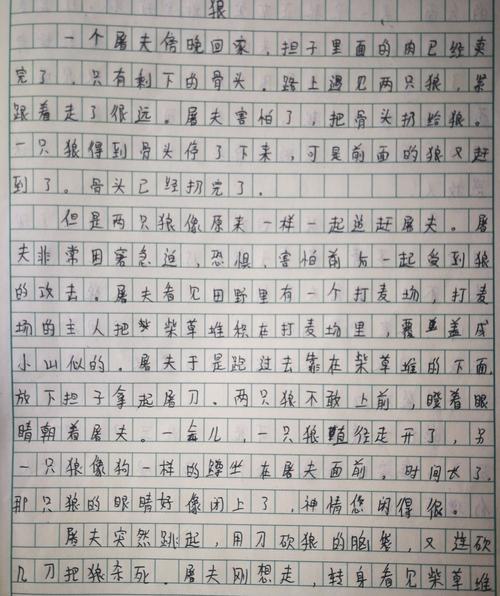 狼
一个屠夫傍晚回家，担子里面的肉已经卖
完了，只有剩下的骨头。路上遇见两只狼，紧
跟着走了很远。屠夫害怕了，把骨头扔给狼。
一只狼得到骨头停了下来，可是前面的狼又赶
到了。骨头已经扔完了。
但是两只狼像原来一样一起追赶屠夫。屠
夫非常困窘急迫，恐惧，害怕前后一起受到狼
的攻击。屠夫看见田野里有一个打麦场，打麦
场的主人把柴草堆积在打麦场里，覆盖成
小山似的。屠夫于是跑过去靠在柴草堆的下面，
放下担子拿起屠刀。两只狼不敢上前，瞪着眼
睛朝着屠夫。一会儿，一只狼径走开了，另
一只狼像狗一样的蹲坐在屠夫面前。时间长了，
那只狼的眼睛好像闭上了，神情悠闲得很。
屠夫突然跳起，用刀砍狼的脑袋，又连砍
几刀把狼杀死。屠夫刚想走，转身看见柴草堆